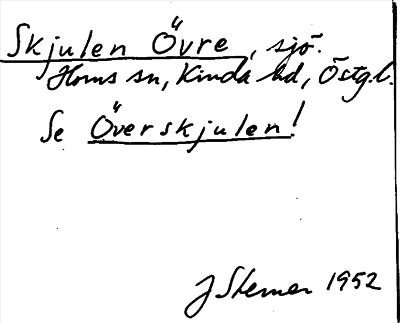 Skjulen Övre, sjö.
Horns sn, Kinda hd, Östg.l.
Se Överskjulen!
J Sterner 1952